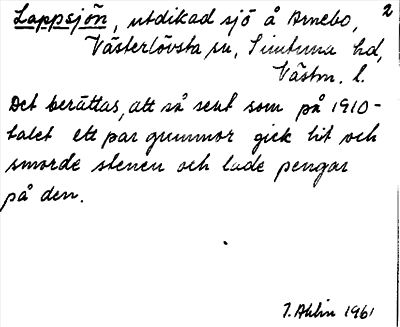 Lappsjön, utdikad sjö å Arnebo, 2
Västerlövsta sn, Simtuna hd,
Västm. l.
Det berättas, att så sent som på 1910-
talet ett par gummor gick hit och
smorde stenen och lade pengar
på den.
I. Ahlin 1961